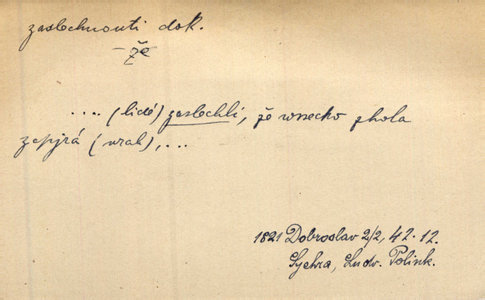 zaslechnouti dok.
– že
.... (lidé) zaslechli, že wssecko zhola
zapjrá (wrah), ...
1821 Dobroslav 2/2, 42. 12.
Sychra, Ludv. Polixk.